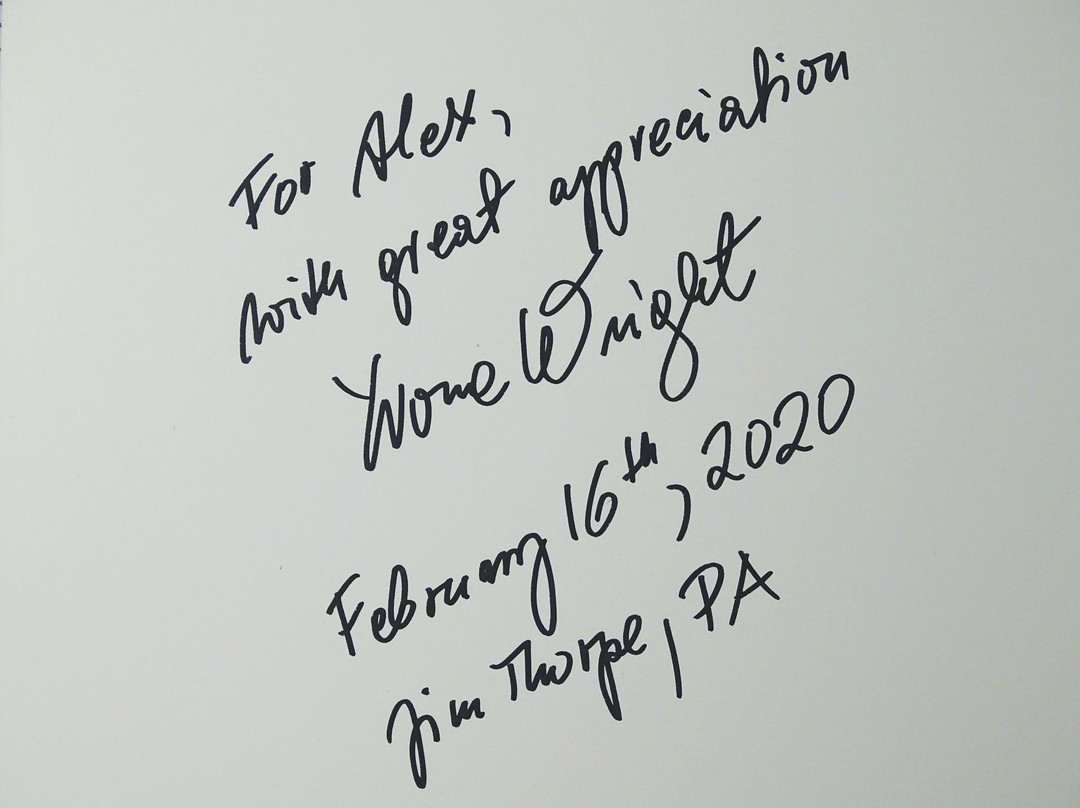 For Alex,
with great appreciation
Yvonne Wright
February 16th, 2020
Jim Thorpe, PA